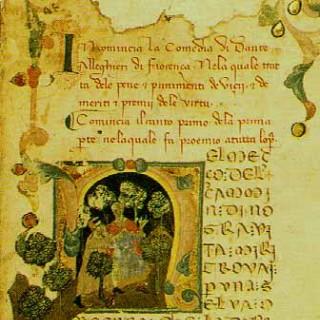 Incomincia la Comedia di Dante
Alleghieri di Fiorença. Nela quale trat
ta dele pene e punimenti de' vicij e de
meriti e premij dele virtu.
Comincia il canto primo dela prima
parte nelaquale fa proemio a tutta l'op̃.
EL MEÇ
ÇO DEL
CAMMI
N DI NO
STRA VI
TA MI RI
TROVAI
P UNA S
ELVA O